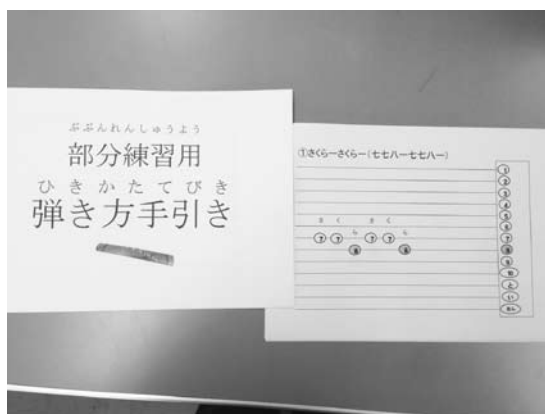 ぶぶんれんしゅうよう
部分練習用
ひきかたてびき
弾き方手引き
①さくらーさくらー(七七八ー七七八ー)
さ く さ く
ら ら
7 7 7 7
8 8
1
2
3
4
5
6
7
8
9
10
と
い
きん